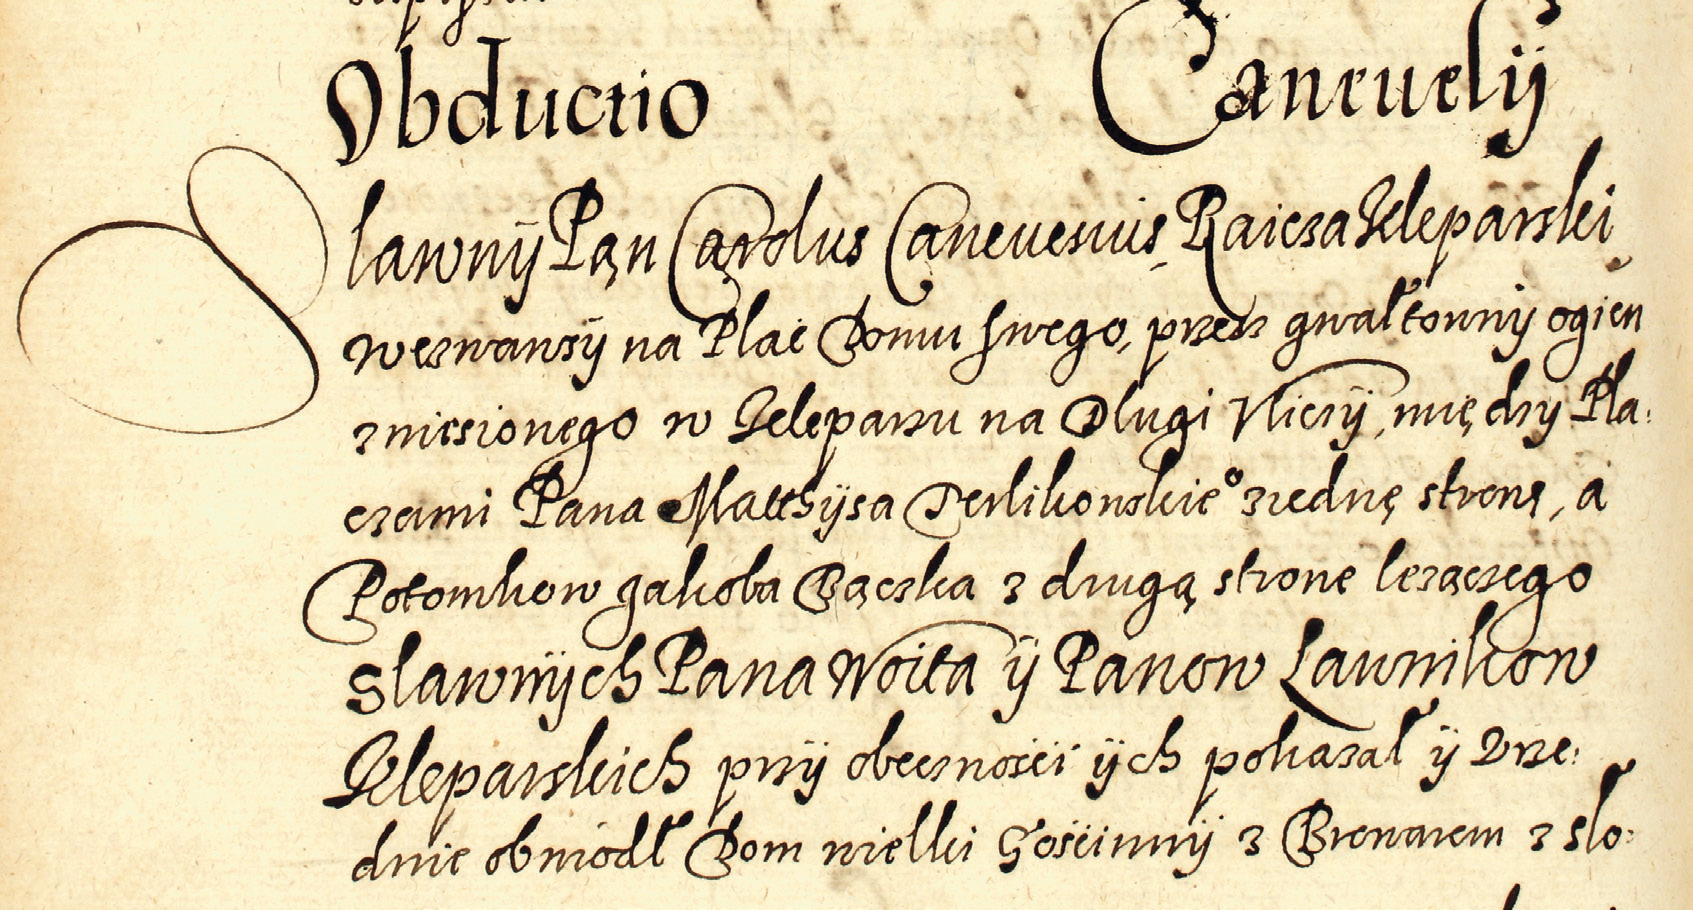 Obductio Caneuelÿ
Slawnÿ Pąn Cąrolus Caneuesius Raicza Kleparski
wezwawszÿ na Plac Domu swego, przez gwałtownÿ ogien
zniesionego w Kleparzu na Dlugi Vliczÿ, między Pla:
czami Pana Matthÿsa Terlikowskieo ziednę stronę, a
Potomkow Jakoba Bączka z drugą strone lezączego
Slawnÿch Pana Woita ÿ Panow Lawnikow
Kleparskich przÿ obecznosci ÿch pokazał ÿ Vrze:
dnie obwiodł Dom wielki Gościnnÿ z Browarem z slo: